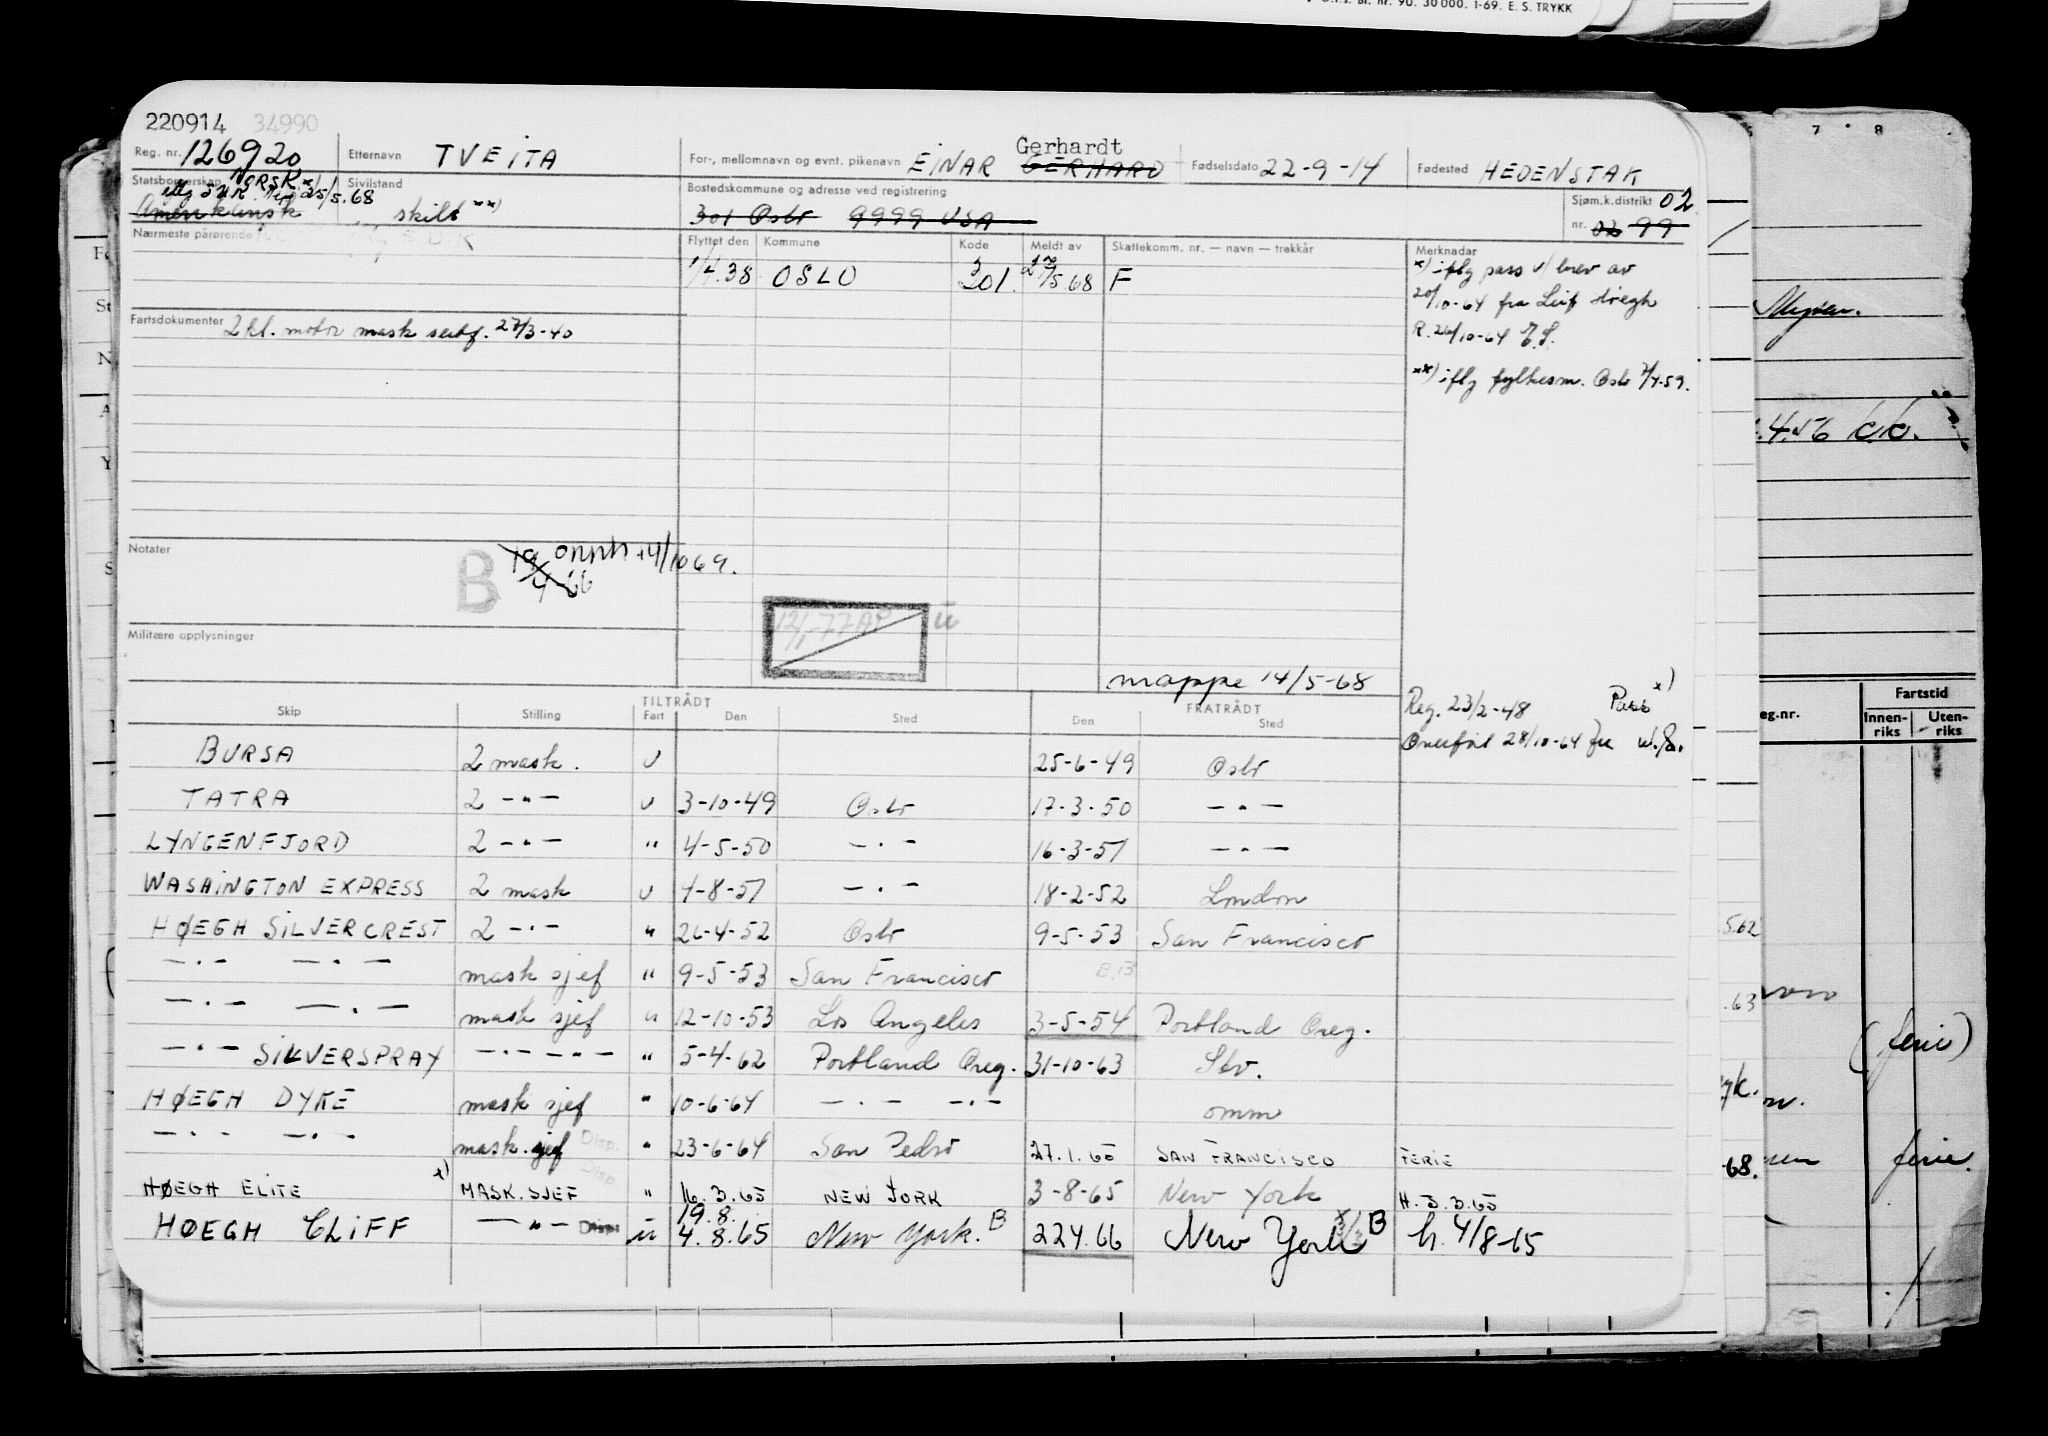 Bl. nr. 90. 30000. 1-69. E. S. TRYKK
220914 34990
Reg. nr. 126920 Etternavn TVEITA For-, mellomnavn og evnt. pikenavn EINAR GERHARD Gerhardt Fødselsdato 22-9-14 Fødested HEDENSTAK
Statsborgerskap NORSK x) 25/5.68 Amerikansk Sivilstand skilt xx) Bostedskommune og adresse ved registrering 301 Oslo 9999 USA Sjøm.k.distrikt 02 nr. 02 99
Nærmeste pårørende Flyttet den Kommune Kode Meldt av Skattekomm. nr. — navn — trekkår Merknadar
1/4.38 OSLO 301. 5 68 F
x) iflg pass v/ brev av
20/10-64 fra Leif Höegh
R. 26/10-64
xx) iflg fylkesm. Oslo 7/4-59.
Fartsdokumenter 2 kl. motor mask sertf. 27/3-40
Notater B 19/4-66 14/10 69.
12/1-77 ü
Militære opplysninger
mappe 14/5-68
Reg. 23/2-48 Pass x)
Overført 28/10-64 fra
TILTRÅDT FRATRÅDT
Skip Stilling Fart Den Sted Den Sted
BURSA 2 mask. U 25-6-49 Oslo
TATRA 2 — " — U 3-10-49 Oslo 17-3-50 — " —
LYNGENFJORD 2 — " — " 4-5-50 — " — 16-3-51 — " —
WASHINGTON EXPRESS 2 mask U 4-8-51 — " — 18-2-52 London
HØEGH SILVERCREST 2 — " — " 26-4-52 Oslo 9-5-53 San Francisco
— " — — " — mask sjef " 9-5-53 San Francisco
— " — — " — mask sjef " 12-10-53 Los Angeles 3-5-54 Portland Oreg.
— " — SILVERSPRAY — " — — " — " 5-4-62 Portland Oreg. 31-10-63 Stv.
HØEGH DYKE mask sjef " 10-6-64 — " — — " — omm
— " — — " — mask.sjef Disp. " 23-6-64 San Pedro 27.1.65 SAN FRANCISCO FERIE
HØEGH ELITE x) MASK.SJEF Disp. " 16.3.65 NEW YORK 3-8-65 New York H. 3.3.65
HØEGH CLIFF — " — Disp. ü 19.8. 4.8.65 New York. B 22.4.66 New York B h. 4/8-65
4.56
Fartstid
eg.nr. Innen-riks Uten-riks
5.62
.63
(ferie)
.68. ferie.